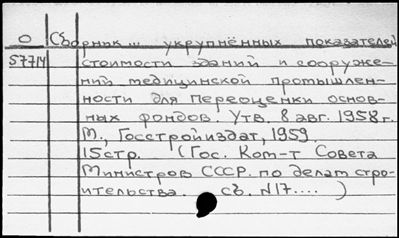 О Сборник ... укрупнённых показателей
57714 стоимости зданий и сооруже-
ний медицинской промышлен-
ности для переоценки основ-
ных фондов. Утв. 8 авг. 1958 г.
М., Госстройиздат, 1959.
15 стр. (Гос. Ком-т Совета
Министров СССР. по делам стро-
ительства. сб. №17....)